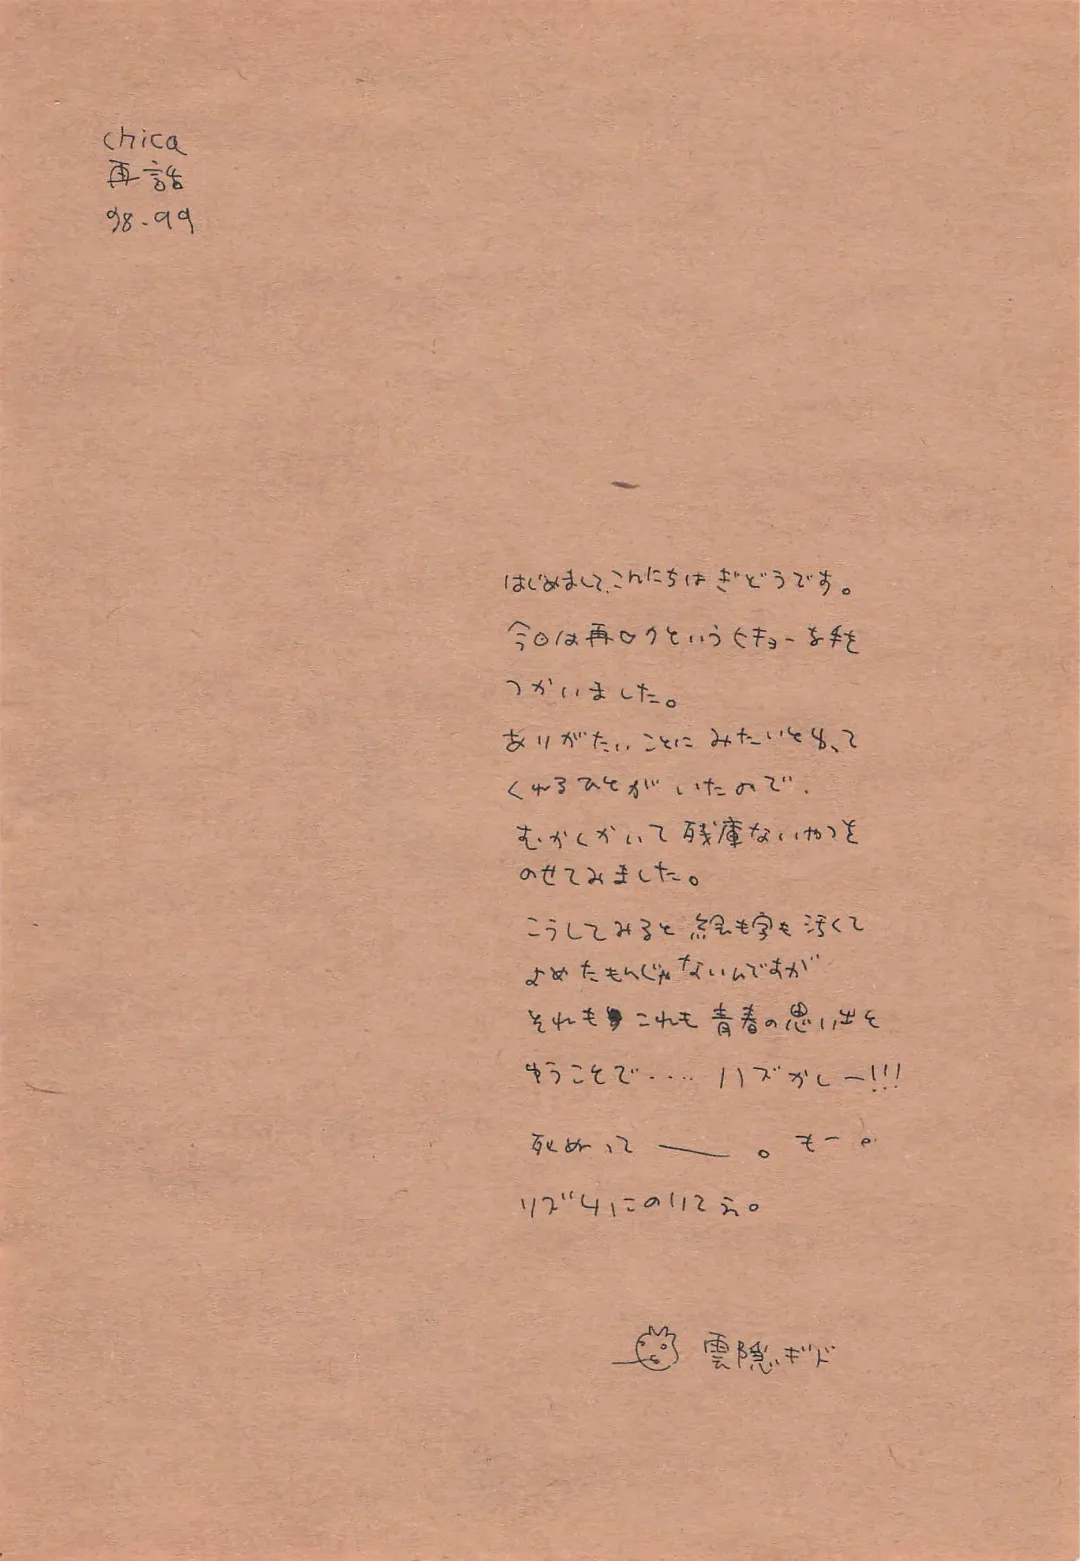 chica
再話
98-99
はじめまして、こんにちは ぎどうです。
今日は再ログというヒキョーな手を
つかいました。
ありがたいことに みたいと
くれるひとが いたので、
むかしかいて 残庫ないやつを
のせてみました。
こうしてみると 絵も字も 汚くて
よめたもんじゃないんですが
それも これも 青春の思い出と
ゆうことで‥‥ ハズかしー!!!
死ぬって ー。もー。
リズムにのりてえ。
雲隠ギド